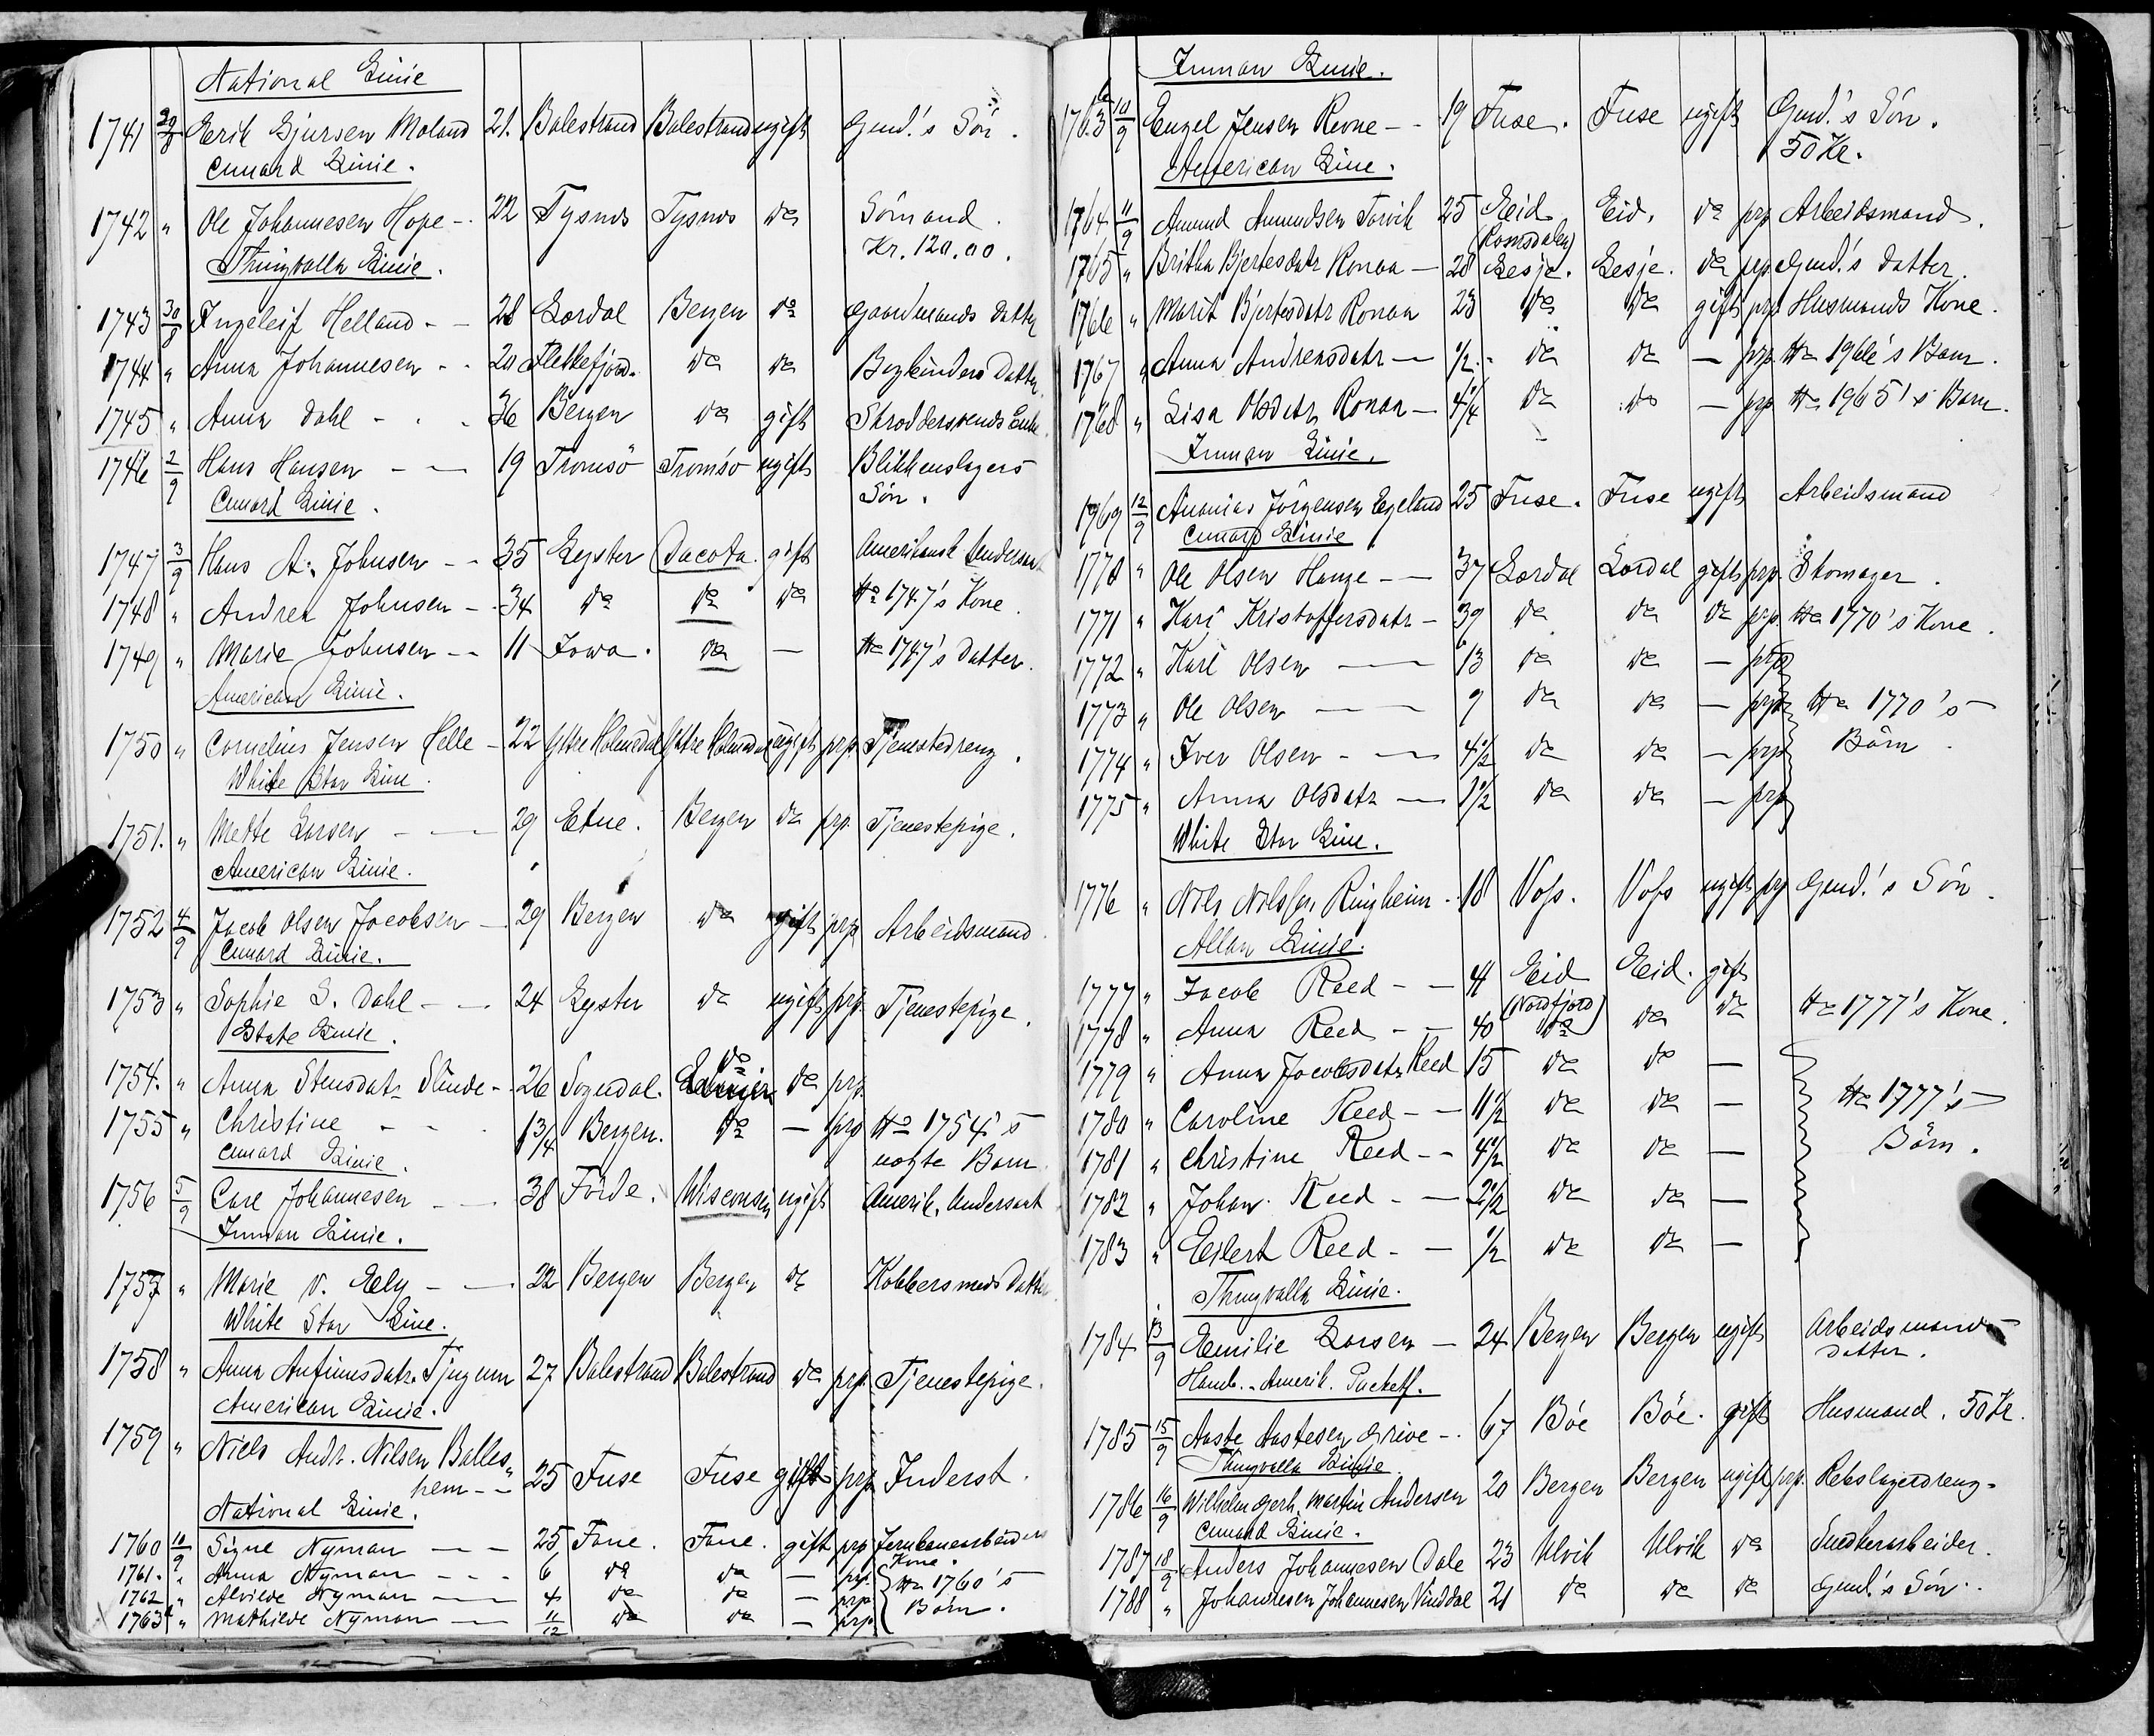 National Linie
1741 29/8 Erik Gjursen Moland 21. Balestrand Balestrand ugift Gmd.'s Søn.
Cunard Linie.
1742 " Ole Johannesen Hope -. 22 Tysnes Tysnes do Sömand.
Kr. 120.00.
Thingvalla Linie.
1743 30/8 Ingeleif Helland - - 28 Lærdal Bergen do Gaardmands Datter
1744 " Anna Johannesen - - 20 Flekkefjord. do do Bogbinders Datter.
1745 " Anna Dahl - - - 36 Bergen do gift Skræddersvends Enke.
1746 2/9 Hans Hansen - — 19 Tromsö Tromsö ugift Blikkenslagers
Søn.
Cunard Linie.
1747 3/9 Hans A. Johnsen - - 35 Lyster Dacota. gift Amerikansk Undersaat
1748 " Andrea Johnsen - - 34 do do do No 1747's Kone.
1749 " Marie Johnsen - - 11 Iowa. do — No 1747's Datter.
American Linie.
1750 " Cornelius Jensen Helle - 22 Yttre Holmedal Yttre Holmedal ugift prp. Tjenestedreng.
White Star Line.
1751. " Mette Larsen - — 29 Etne. Bergen do prp. Tjenestepige.
American Linie.
1752 4/9 Jacob Olsen Jacobsen — 29 Bergen do gift prp. Arbeidsmand.
Cunard Linie.
1753 " Sophie S. Dahl - — 24 Lyster do ugift prp. Tjenestepige.
State Linie.
1754. " Anna Stensdatr Slinde - - 26 Sogndal. do do prp.
1755 " Christine - - - 1 3/4 Bergen. do — prp No 1754's
uægte Barn.
Cunard Linie.
1756 5/9 Carl Johannesen - — 38 Förde. Wisconsin ugift Amerik. Undersaat
Inman Linie.
1757 " Marie v. Eely - — 22 Bergen Bergen do Kobbersmeds Datter
White Star Line.
1758 " Anna Anfinnsdatr. Tjugum 27 Balestrand Balestrand do prp. Tjenestepige.
American Linie.
1759 " Niels Andr. Nilsen Balles-
hem - - 25 Fuse Fuse gift prp Inderst.
National Linie.
1760 10/9 Signe Nyman - — 25 Fane. Fane. gift prp Jernbanearbeiders
Kone.
1761. " Anna Nyman - - - 6 do do — prp. No 1760's
1762 " Alvilde Nyman - — 4 do do — prp. Börn.
1763 " Mathilde Nyman — 11/12 do do — prp.
Inman Linie.
1763 b 10/9 Engel Jensen Revne - - 19 Fuse. Fuse ugift Gmd.'s Søn.
50 Kr.
American Line.
1764 11/9 Amund Amundsen Torvik 25 Eid Eid. do prp Arbeidsmand.
(Romsdalen)
1765 " Britha Bjertesdatr Ronaa — 28 Lesje. Lesje. do prp Gmd.'s Datter.
1766 " Marit Bjertesdatr Ronaa 23 do do gift prp. Husmands Kone.
1767 " Anna Andreasdatr — 1/2 - do do — prp No 1966's Barn.
1768 " Lisa Olsdatr Ronaa — 4 1/4 do do — prp No 1965's Barn.
Inman Linie.
1969 12/9 Ananias Jörgensen Egeland 25 Fuse. Fuse ugift Arbeidsmand
Cunard Linie
1770 " Ole Olsen Hauge - — 37 Lærdal Lærdal gift prp. Skomager.
1771 " Kari Kristoffersdatr - 39 do do do prp. No 1770's Kone.
1772 " Kari Olsen — 13 do do — prp
1773 " Ole Olsen — — 9 do do — prp No 1770's
1774 " Iver Olsen - — 4 1/2 do do — prp Börn.
1775 " Anna Olsdatr — 1 1/2 do do — prp
White Star Line.
1776 " Nils Nilssen Ringheim - 18 Voss. Voss ugift prp Gmd.'s Søn.
Allan Linie.
1777 " Jacob Reed - — 41 Eid Eid. gift
(Nordfjord)
1778 " Anna Reed - — 40 do do do No 1777's Kone.
1779 " Anna Jacobsdatr Reed 15 do do —
1780 " Caroline Reed - — 11 1/2 do do — No 1777's
1781 " Christine Reed - - 4 1/2 do do — Börn.
1782 " Johan Reed - — 2 1/2 do do —
1783 " Eilert Reed - — 1/2 do do —
Thingvalla Linie.
1784 13/9 Emilie Larsen — 24 Bergen Bergen ugift Arbeidsmands
datter.
Hamb.-Amerik. Packetf.
1785 15/9 Aaste Aastesen Grive -. 67 Böe Böe. gift Husmand. 50 Kr.
Thingvalla Linie
1786 16/9 Wilhelm Gerh. Martin Andersen 20 Bergen Bergen ugift prp. Rebslagerdreng.
Cunard Linie.
1787 18/9 Anders Johannesen Dale 23 Ulvik Ulvik do Snedkerarbeider.
1788 " Johannesen Johannesen Vinddal 21 do do do Gmd.'s Søn.